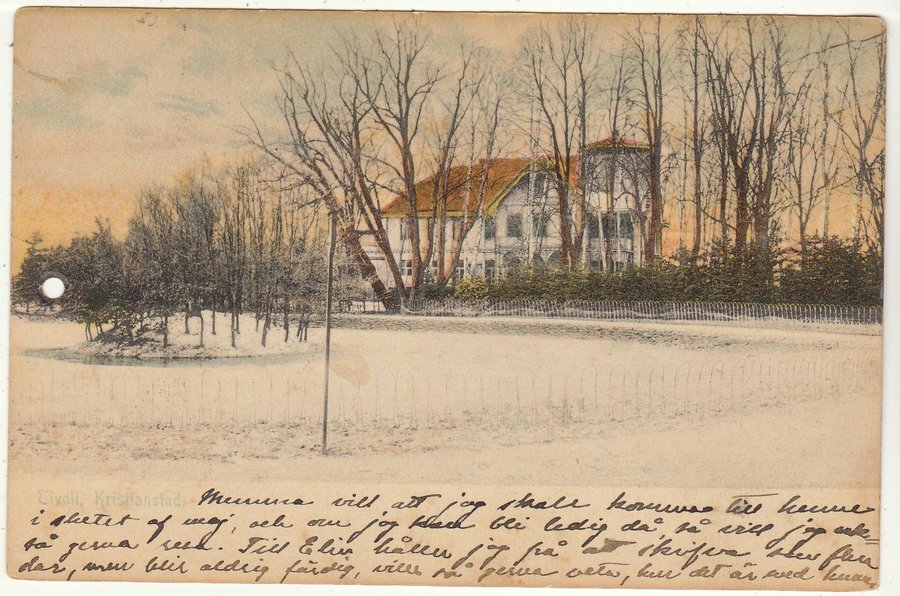 Tivoli, Kristianstad.
Memma vill att jag skall komma till henne
i slutet af maj, och om jag kan bli ledig då, så vill jag
så gerna resa. Till Elin håller jag på att skrifva sen flera
dar, men blir aldrig färdig, ville så gerna veta, hur det är med